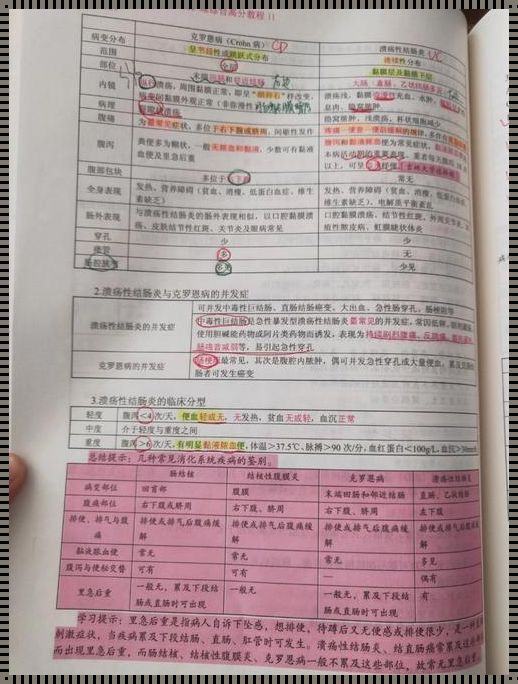 综合高分教程 II
病变分布 克罗恩病（Crohn 病） CD 溃疡性结肠炎 UC
分布 呈节段性或跳跃式分布 连续性分布
范围 全层 黏膜层及黏膜下层
末端回肠和邻近结肠 大肠（直肠、乙状结肠多见）
内镜 纵行溃疡，周围黏膜正常，即呈“鹅卵石”样改变， 溃疡浅，黏膜弥漫性充血、水肿，
病变间黏膜外观正常（非弥漫性） 息肉、
病理 裂隙状溃疡 隐窝脓肿，浅溃疡，杯状细胞减少
腹痛 为最常见症状，多位于右下腹或脐周，间歇性发作 疼痛—便意—便后缓解的规律，多在
腹泻 粪便多为糊状，一般无脓血和黏液，少数可有黏液 腹泻和黏液脓血便为常见症状，
血便及里急后重 本病活动期的重要表现，重者每天超10次
以上，可呈
腹部包块 多位于右下腹 常无
全身表现 发热、营养障碍（贫血、消瘦、低蛋白血症、维生 发热、营养障碍（贫血、消瘦、低蛋白血症、
素缺乏） 维生素缺乏）、电解质平衡紊乱
肠外表现 与溃疡性结肠炎的肠外表现相似，以口腔黏膜溃 口腔黏膜溃疡、结节性红斑、外周关节炎、
疡、皮肤结节性红斑、关节炎及眼病常见 疽性脓皮病、虹膜睫状体炎
穿孔 少 少
瘘管 多 无
肠腔狭窄 多见 少见
2.溃疡性结肠炎与克罗恩病的并发症
可并发中毒性巨结肠、直肠结肠癌变、大出血、急性肠穿孔、肠梗阻等
溃疡性结肠炎的并发症 中毒性巨结肠是急性暴发型溃疡性结肠炎最常见的并发症，常因低钾、钡剂灌肠、
使用胆碱能药物或阿片类药物而诱发，表现为持续剧烈腹痛、反跳痛、
肠鸣音减弱等，易引起急性穿孔
克罗恩病的并发症 肠梗阻最常见，其次是腹腔内脓肿，偶可并发急性穿孔或大量便血，累及直肠结
肠者可发生癌变
3.溃疡性结肠炎的临床分型
轻度 腹泻<4次/天，便血轻或无，无发热，贫血无或轻，血沉正常
中度 介于轻度与重度之间
重度 腹泻>6次/天，有明显黏液脓血便，体温>37.5℃、脉搏>90 次/分，血红蛋白<100g/L，血沉>30mm/h
总结提示：几种常见消化系统疾病的鉴别。
肠结核 结核性腹膜炎 克罗恩病 溃疡性结肠炎
病变部位 回盲部 腹膜 末端回肠和邻近结肠 直肠、乙状结肠
腹痛部位 右下腹或脐周 右下腹、脐周 右下腹、脐周 左下腹
排便、排气与腹 排便或排气后腹痛缓 排便或排气后腹痛缓 排便或排气后腹痛缓 排便或排气后腹痛缓
痛 解 解 解 解
黏液脓血便 常无 常无 常无 多见
腹泻与便秘交替 可有 可有 — 偶有
里急后重 一般无，累及下段结 一般无 一般无，累及下段结 有
肠或直肠时可出现 肠或直肠时可出现
学习提示：里急后重是指病人自诉下坠感，想排便，待蹲后又无便感或排便很少，是一种直肠
刺激症状，当疾病累及下段结肠、直肠、肛管时可发生。溃疡性结肠炎、结直肠癌常累及这些部位
而出现里急后重，而肠结核、结核性腹膜炎、克罗恩病一般不累及这些部位，故常无里急后重